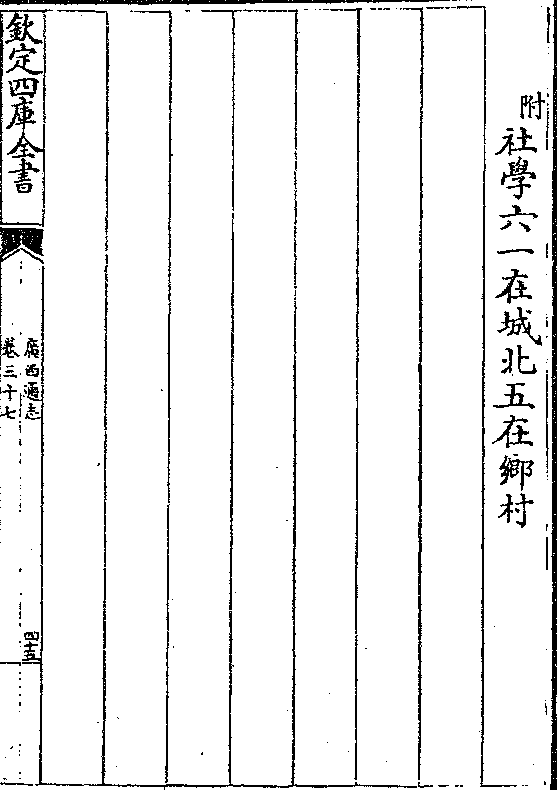 附
社學六一在城北五在鄉村
欽定四庫全書
廣西通志
卷三十七
四十五